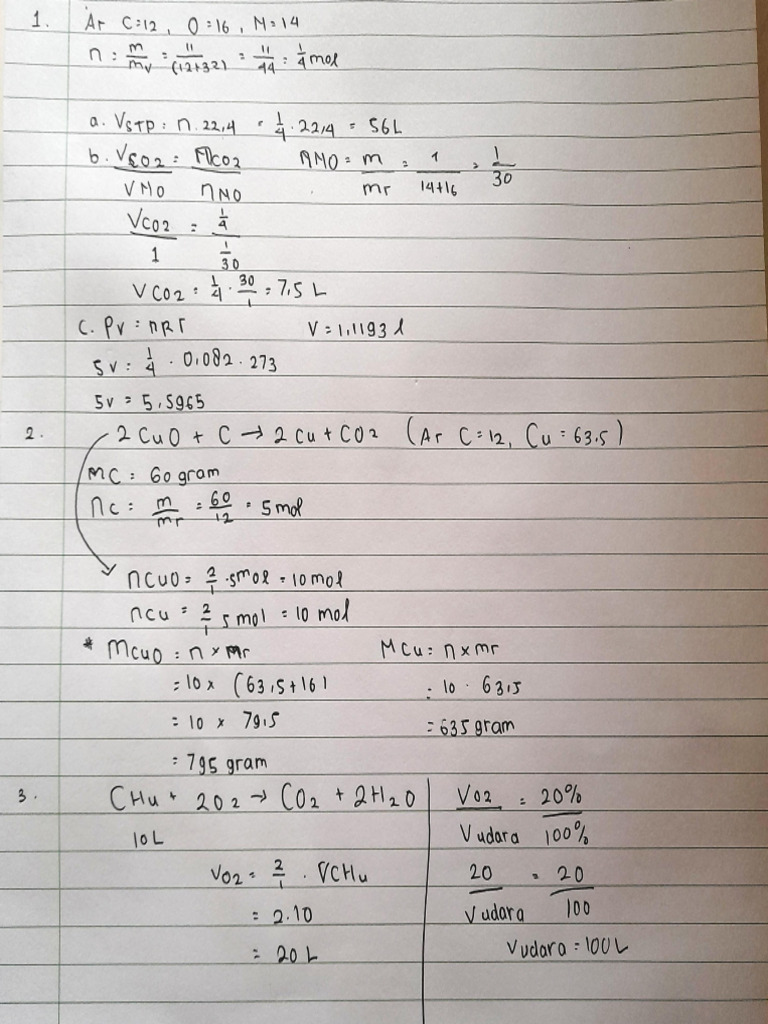 1. Ar C=12, O=16, N=14
n = m/mr = 11/(12+32) = 11/44 = 1/4 mol
a. VSTP = n. 22,4 = 1/4 . 22,4 = 56L
b. VCO2/VNO = nCO2/nNO nNO = m/mr = 1/14+16 = 1/30
VCO2/1 = 1/4 / 1/30
VCO2 = 1/4 . 30/1 = 7,5 L
C. Pv = nRT V = 1,1193 l
5v = 1/4 . 0,082 . 273
5v = 5,5965
2. 2CuO + C → 2Cu + CO2 (Ar C=12, Cu = 63.5)
MC = 60 gram
nC = m/mr = 60/12 = 5 mol
nCuO = 2/1 . 5mol = 10 mol
nCu = 2/1 5 mol = 10 mol
* MCuO = n x Mr
= 10 x (63,5+16)
= 10 x 79,5
= 795 gram
MCu = n x mr
= 10 . 63,5
= 635 gram
3. CH4 + 2O2 → CO2 + 2H2O
10L
VO2 = 2/1 . VCH4
= 2.10
= 20 L
VO2/Vudara = 20%/100%
20/Vudara = 20/100
Vudara = 100L